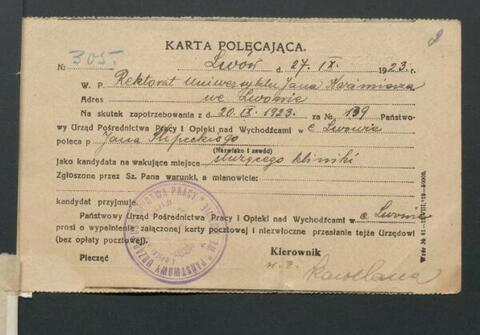 KARTA POLECAJĄCA.
2
№ 305. Lwów d. 27. IX. 1923. r.
W. P. Rektorat Uniwersytetu Jana Kazimierza
Adres we Lwowie
Na skutek zapotrzebowania z d. 20. IX. 1923. za № 139 Państwo-
wy Urząd Pośrednictwa Pracy i Opieki nad Wychodźcami w e Lwowie
poleca p Jana
(Nazwisko i zawód)
jako kandydata na wakujące miejsce służącego kliniki
Zgłoszone przez Sz. Pana warunki, a mianowicie:
kandydat przyjmuje.
Państwowy Urząd Pośrednictwa Pracy i Opieki nad Wychodźcami w e Lwowie
prosi o wypełnienie załączonej karty pocztowej i niezwłoczne przesłanie tejże Urzędowi
(bez opłaty pocztowej).
Pieczęć Kierownik